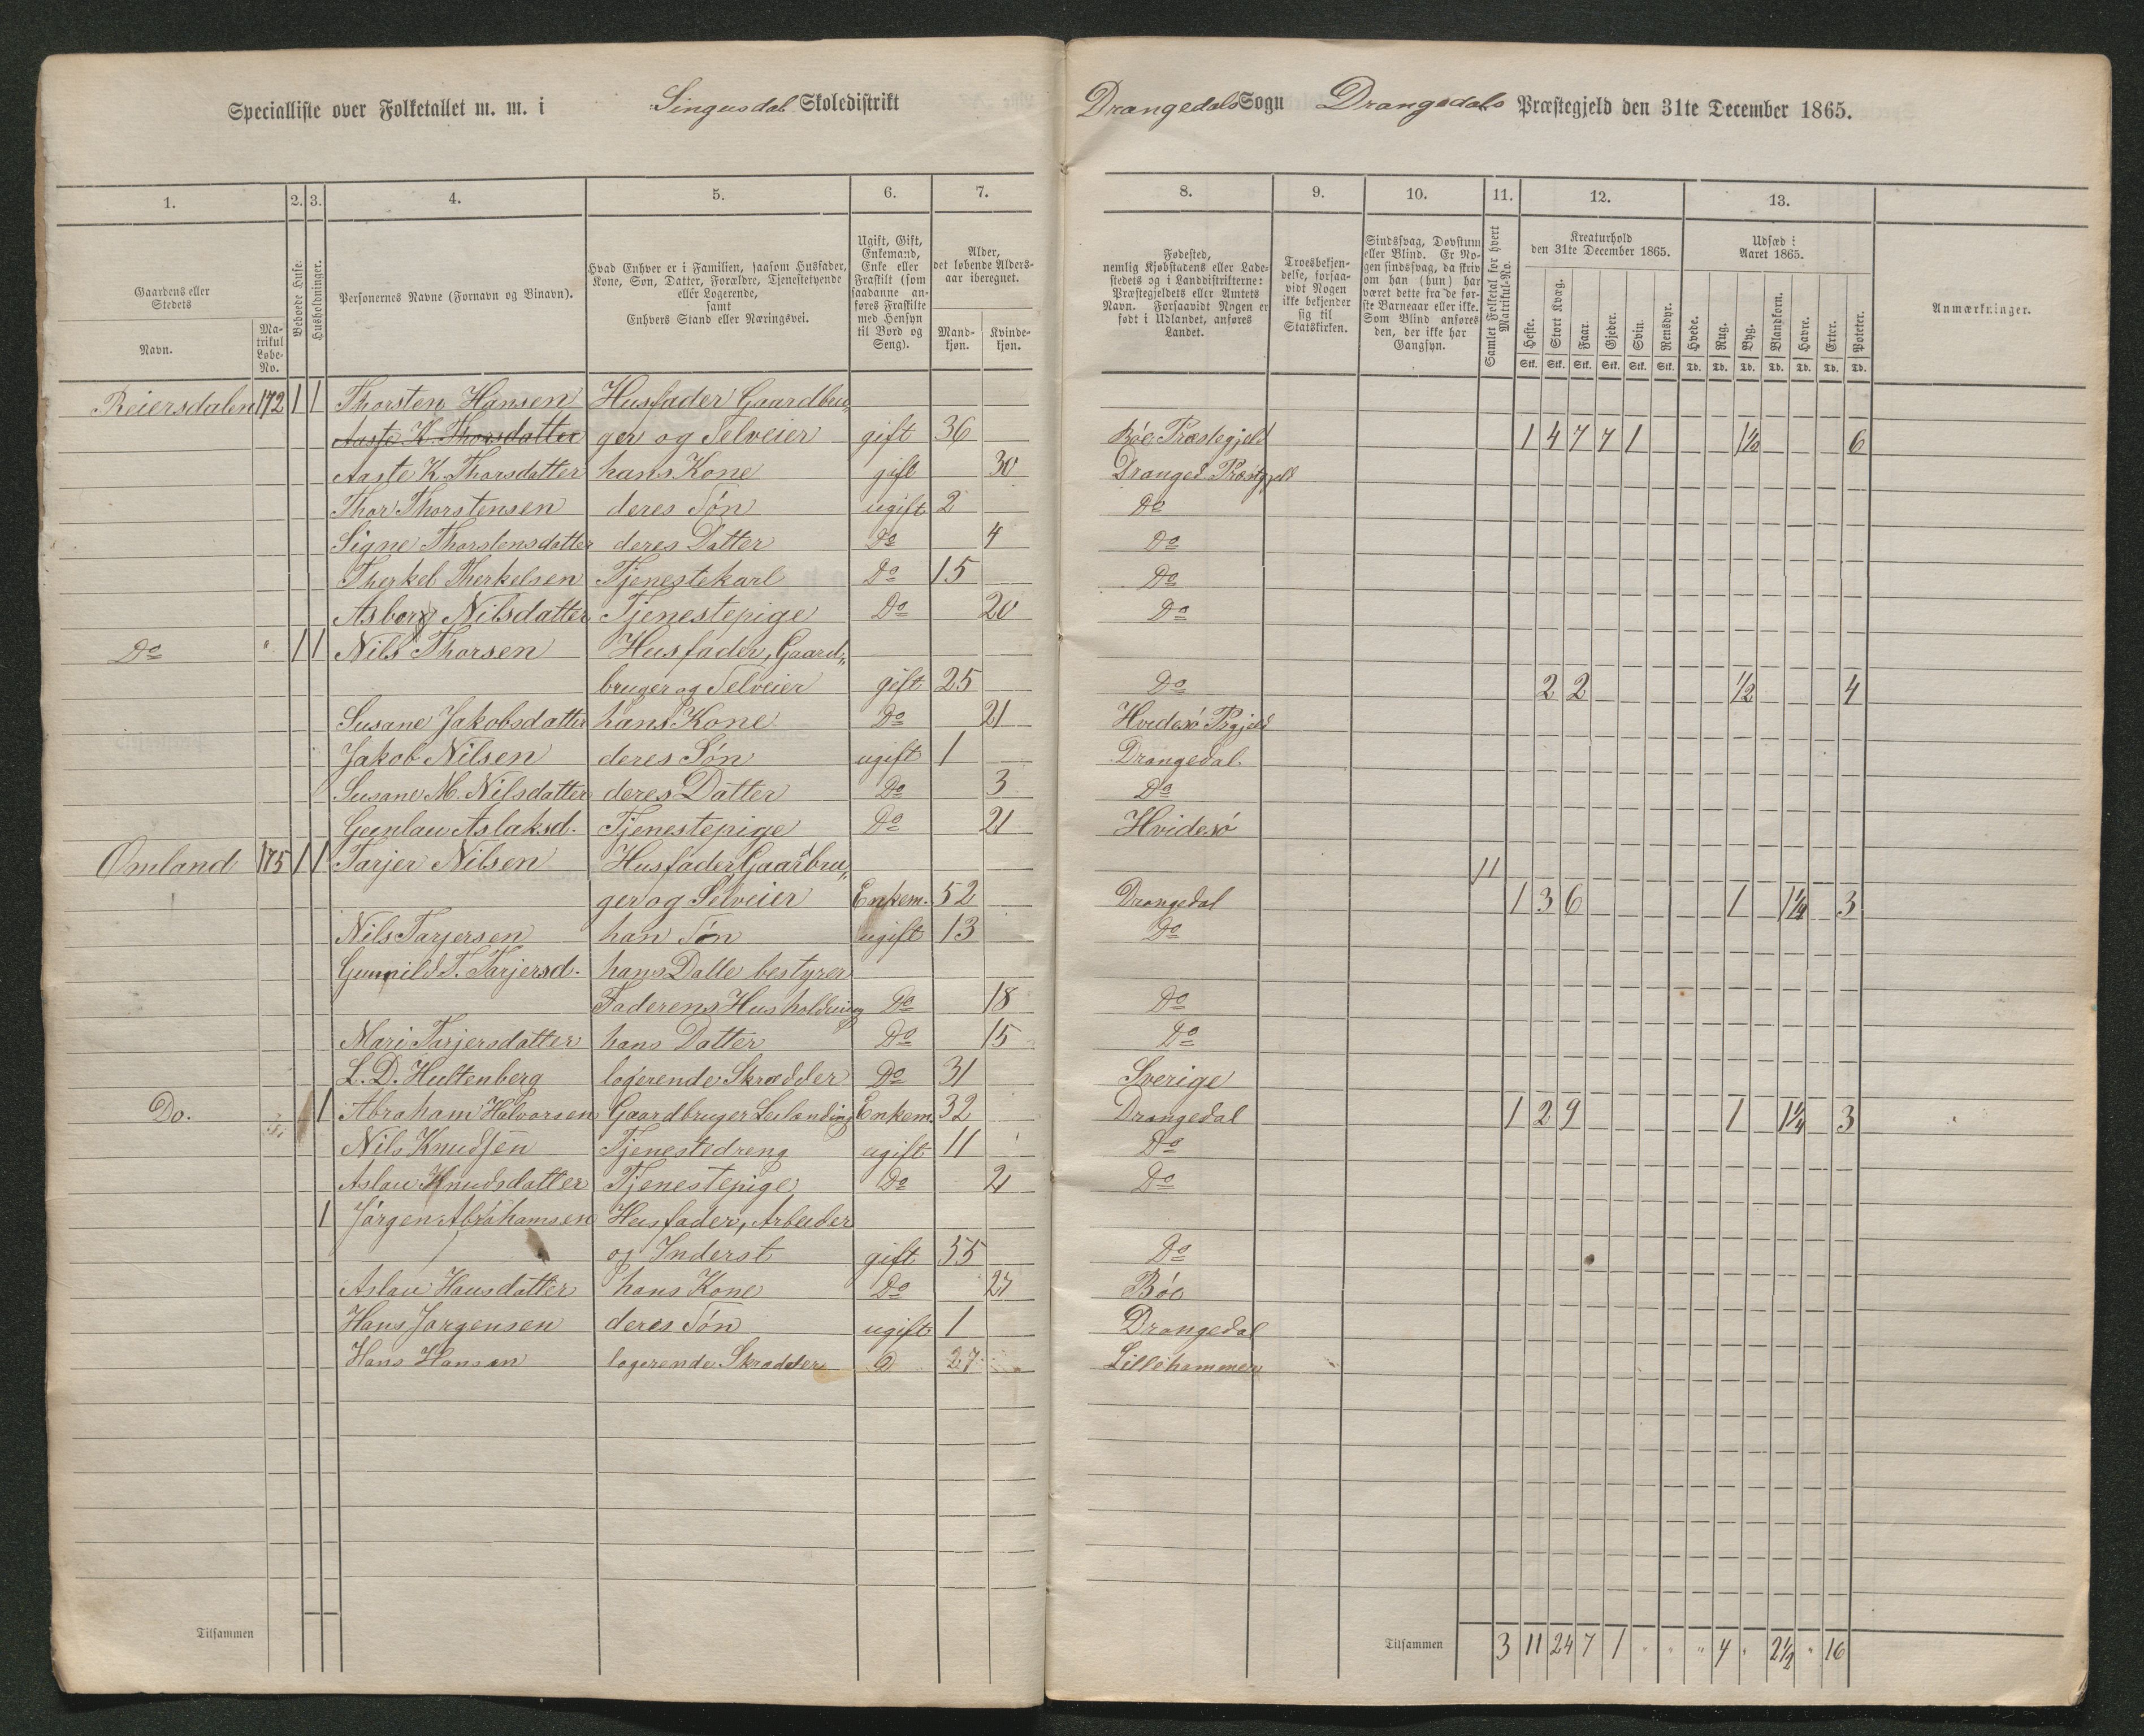 Specialliste over Folketallet m. m. i Singusdal Skoledistrikt Drangedals Sogn Drangedals Præstegjeld den 31te December 1865.
1. 2. 3. 4. 5. 6. 7. 8. 9. 10. 11. 12. 13.
Gaardens eller Stedets
Navn.
Matrikul Løbe-No.
Beboede Huse.
Husholdninger.
Personernes Navne (Fornavn og Binavn).
Hvad Enhver er i Familien, saasom Husfader, Kone, Søn, Datter, Forældre, Tjenestetyende eller Logerende, samt Enhvers Stand eller Næringsvei.
Ugift, Gift, Enkemand, Enke eller Fraskilt (som saadanne anføres Fraskilte med Hensyn til Bord og Seng).
Alder, det løbende Alders-aar iberegnet.
Mand-kjøn.
Kvinde-kjøn.
Fødested, nemlig Kjøbstadens eller Ladestedets og i Landdistrikterne: Præstegjeldets eller Amtets Navn. Forsaavidt Nogen er født i Udlandet, anføres Landet.
Troesbekjendelse, forsaavidt Nogen ikke bekjender sig til Statskirken.
Sindssvag, Døvstum eller Blind. Er Nogen sindssvag, da skriv om han (hun) har været dette fra de første Barneaar eller ikke. Som Blind anføres den, der ikke har Gangsyn.
Samlet Folketal for hvert Matrikul-No.
Kreaturhold den 31te December 1865.
Heste. Stort Kvæg. Faar. Gjeder. Svin. Rensdyr.
Stk. Stk. Stk. Stk. Stk. Stk.
Udsæd i Aaret 1865.
Hvede. Rug. Byg. Blandkorn. Havre. Erter. Poteter.
Td. Td. Td. Td. Td. Td. Td.
Anmærkninger.
Reiersdalen 172 1 1 Thorsten Hansen Husfader Gaardbru„
Aaste K. Thorsdatter ger og Selveier gift 36 Böe Præstegjeld 1 4 7 7 1 6
Aaste K. Thorsdatter hans Kone gift 30 Dranged. Præstgjeld
Thor Thorstensen deres Søn ugift 2 Do
Signe Thorstensdatter deres Datter Do 4 Do
Therkel Therkelsen Tjenestekarl Do 15 Do
Asborg Nilsdatter Tjenestepige Do 20 Do
Do " 1 1 Nils Thorsen Husfader, Gaard„
bruger og Selveier gift 25 Do 2 2 1/2 4
Susane Jakobsdatter hans Kone Do 21 Hvidesö Prgjeld
Jakob Nilsen deres Søn ugift 1 Drangedal
Susane M. Nilsdatter deres Datter Do 3 Do
Gunlau Aslaksd. Tjenestepige Do 21 Hvidesö
Omland 175 1 1 Tarjer Nilsen Husfader Gaardbru„ 11
ger og Selveier Enkem. 52 Drangedal 1 3 6 1 1 1/4 3
Nils Tarjersen han Søn ugift 13 Do
Gunnild T. Tarjersd. hans Datte bestyrer
Faderens Husholdning Do 18 Do
Mari Tarjersdatter hans Datter Do 15 Do
L. D. Hultenberg logerende Skrædder Do 31 Sverige
Do. 1 Abraham Halvorsen Gaardbruger Leilænding Enkem. 32 Drangedal 1 2 9 1 1 1/4 3
Nils Knudsen Tjenestedreng ugift 11 Do
Aslau Knudsdatter Tjenestepige Do 21 Do
1 Jörgen Abrahamsen Husfader, Arbeider
og Inderst gift 55 Do
Aslau Hansdatter hans Kone Do 27 Böe
Hans Jørgensen deres Søn ugift 1 Drangedal
Hans Hansen logerende Skrædder D 27 Lillehammer
Tilsammen
Tilsammen 3 11 24 7 1 " " " 4 " 2 1/2 " 16